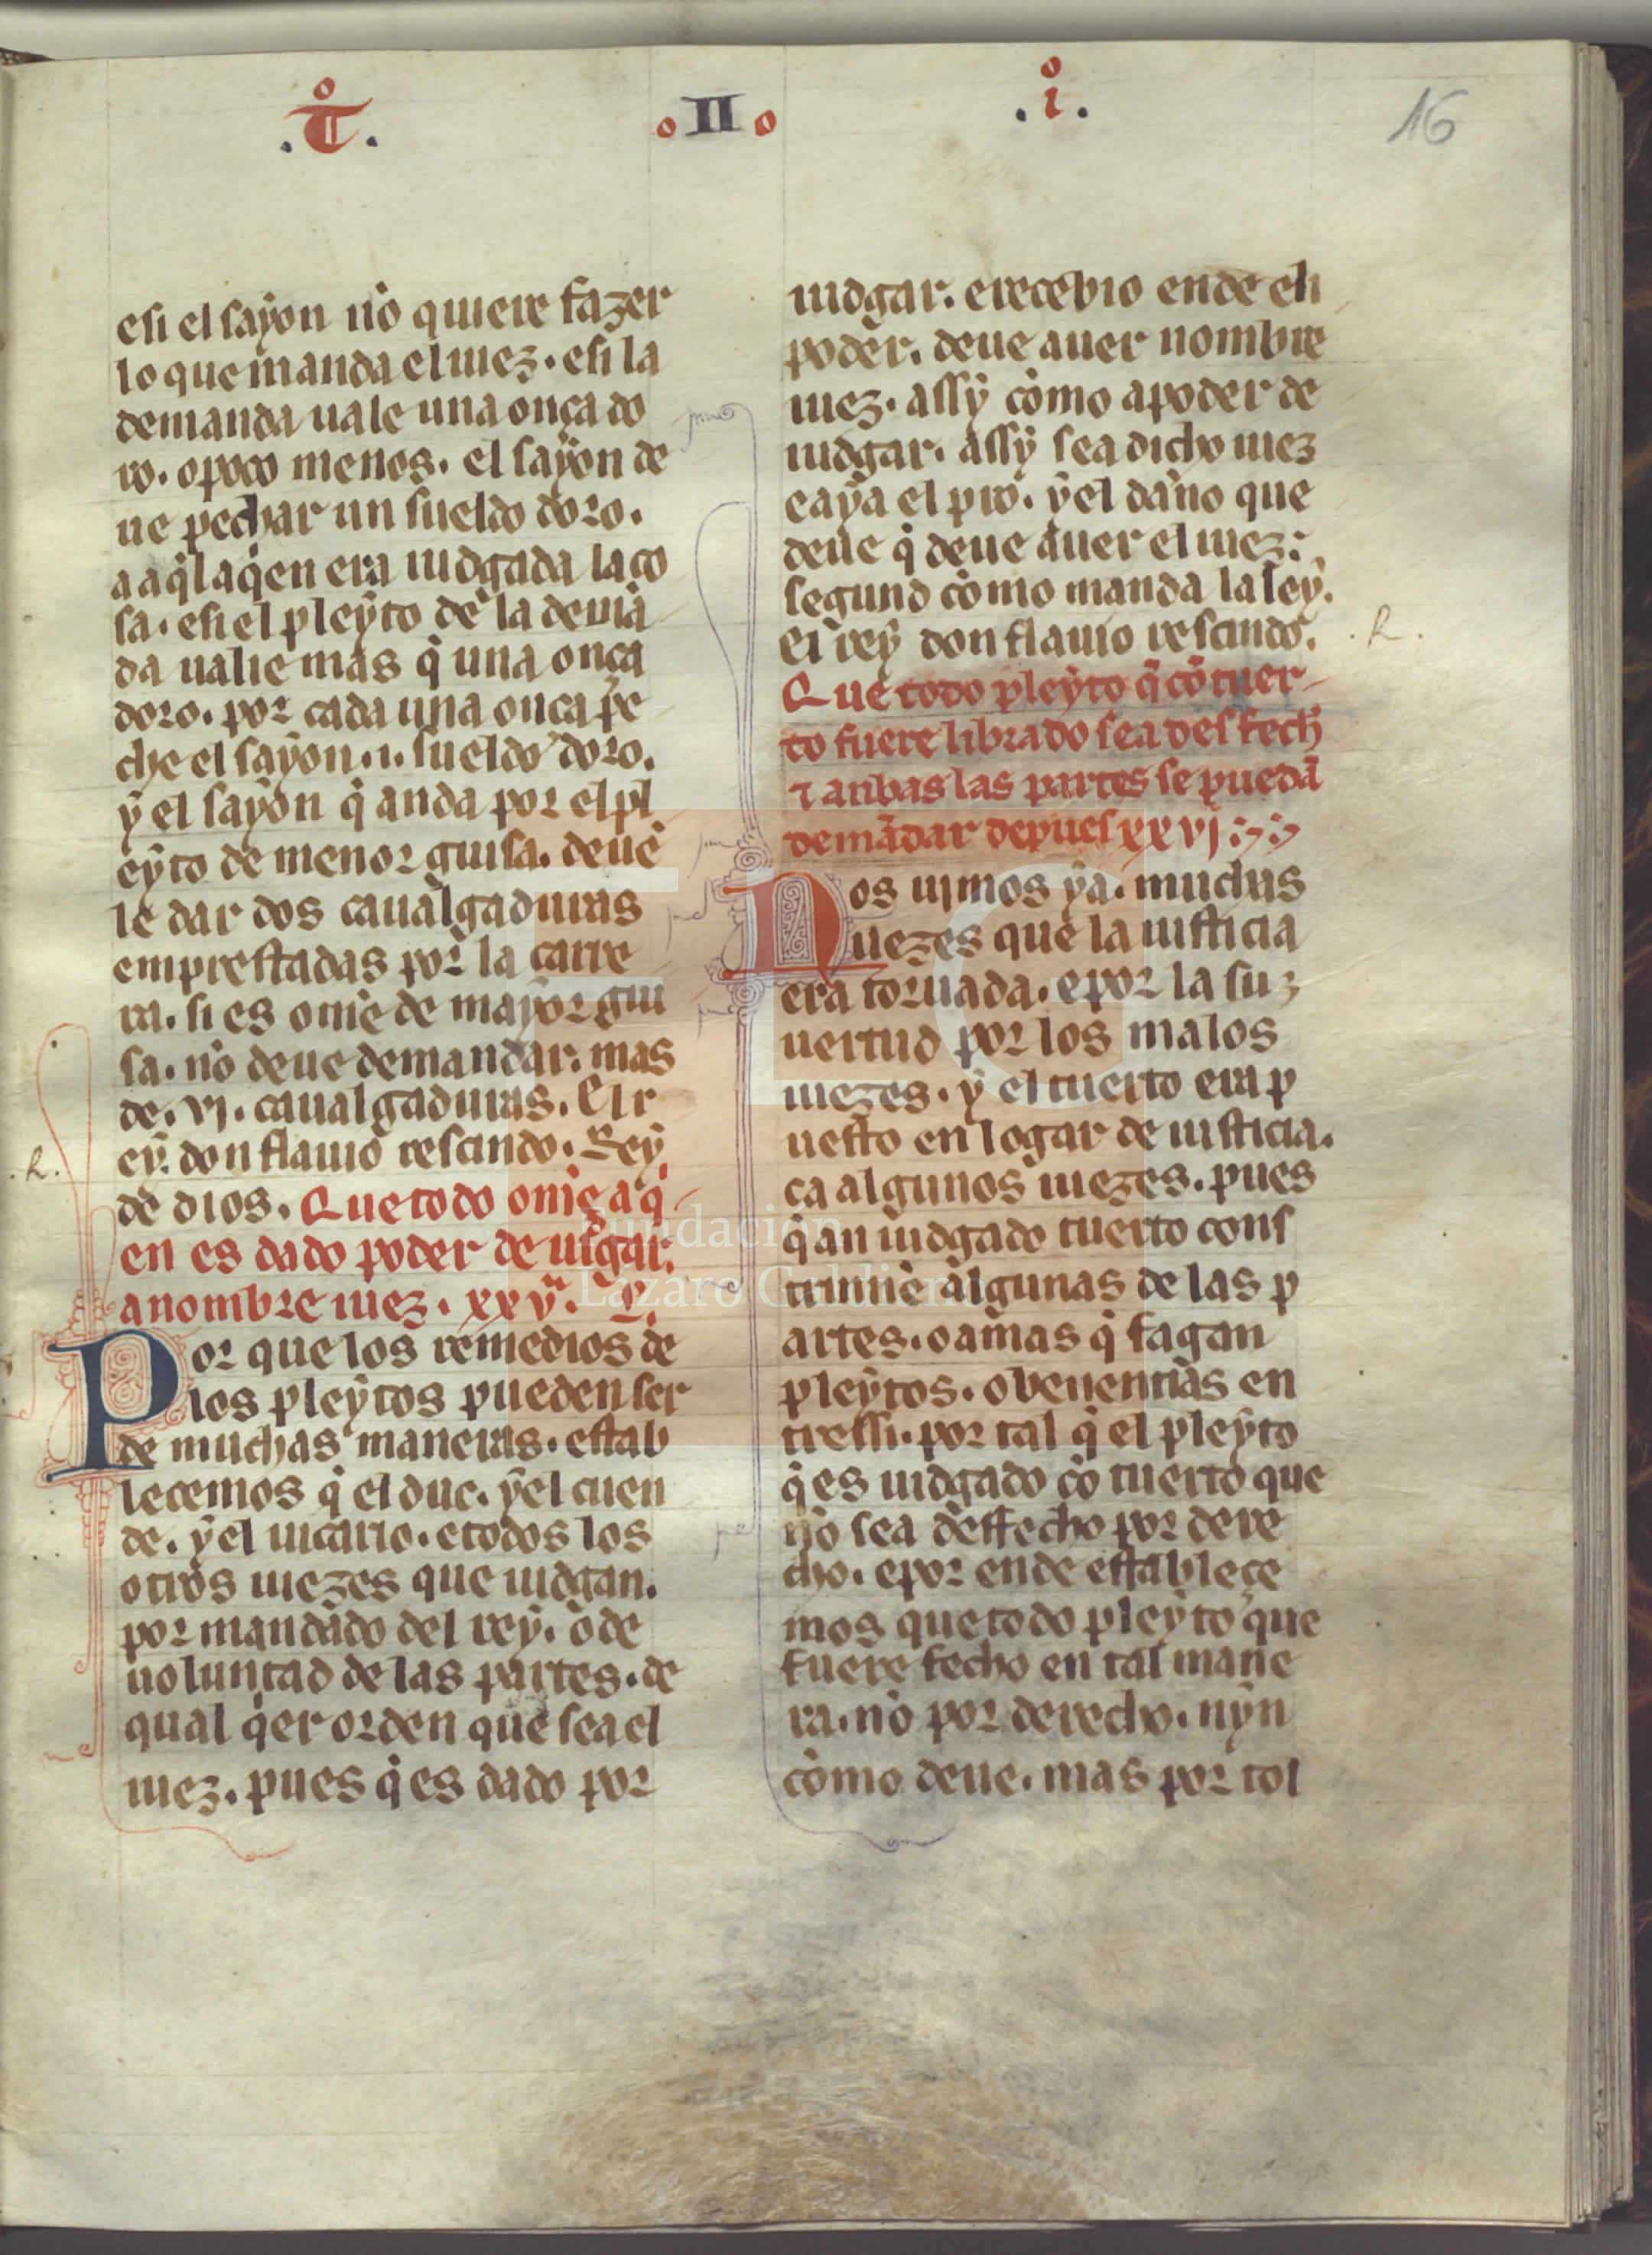 .T̊. o II o .i̊. 16
esi el sayon nō quiere fazer
lo que manda el iuez. esi la
demanda uale una onça do
ro. o poco menos. el sayon de
ue pechar un sueldo doro.
a aq̄l aqen era iudgada la co
sa. esi el pleyto de la demā
da ualie mas q̄ una onça
doro. por cada una onca pe
che el sayon .i. sueldo doro.
y el sayon q̄ anda por el pl
eyto de menor guisa. deue
le dar dos caualgaduras
emprestadas por la carre
ra. si es om̄e de mayor gui
sa. nō deue demandar. mas
de. vj. caualgaduras. El r
ey. don flauio rescindo. Rey
de dios. Que todo om̄e a q̄
en es dado poder de iudgar.
a nombre iuez. xxv.
Por que los remedios de
los pleytos pueden ser
de muchas maneras. estab
lecemos q̄ el duc. y el cuen
de. y el uicario. e todos los
otros iuezes que iudgan.
por mandado del rey. o de
uoluntad de las partes. de
qual q̄er orden que sea el
iuez. pues q̄ es dado por
iudgar. e recebio ende el
poder. deue auer nombre
iuez. assy como a poder de
iudgar. assy sea dicho iuez
e aya el pro. y el daño que
deue q̄ deue auer el iuez:
segund como manda la ley.
El rey don flauio rescindo. .R.
Que todo pleyto q̄ cō tuer
to fuere librado sea desfech
⁊ anbas las partes se puedā
demādar depues xxvj
Nos uimos ya. muchas
uezes que la iusticia
era toruada. e por la su
uertud por los malos
iuezes. y el tuerto era p
uesto en logar de iusticia.
ca algunos iuezes. pues
q̄ an iudgado tuerto cons
trinnē algunas de las p
artes. o amas q̄ fagan
pleytos. o beuenencias en
tressi. por tal q̄ el pleyto
q̄ es iudgado cō tuerto que
nō sea deffecho por dere
cho. e por ende establece
mos que todo pleyto que
fuere fecho en tal mane
ra. nō por derecho. nyn
como deue. mas por tol
.R.
Fundación
Lázaro Galdiano